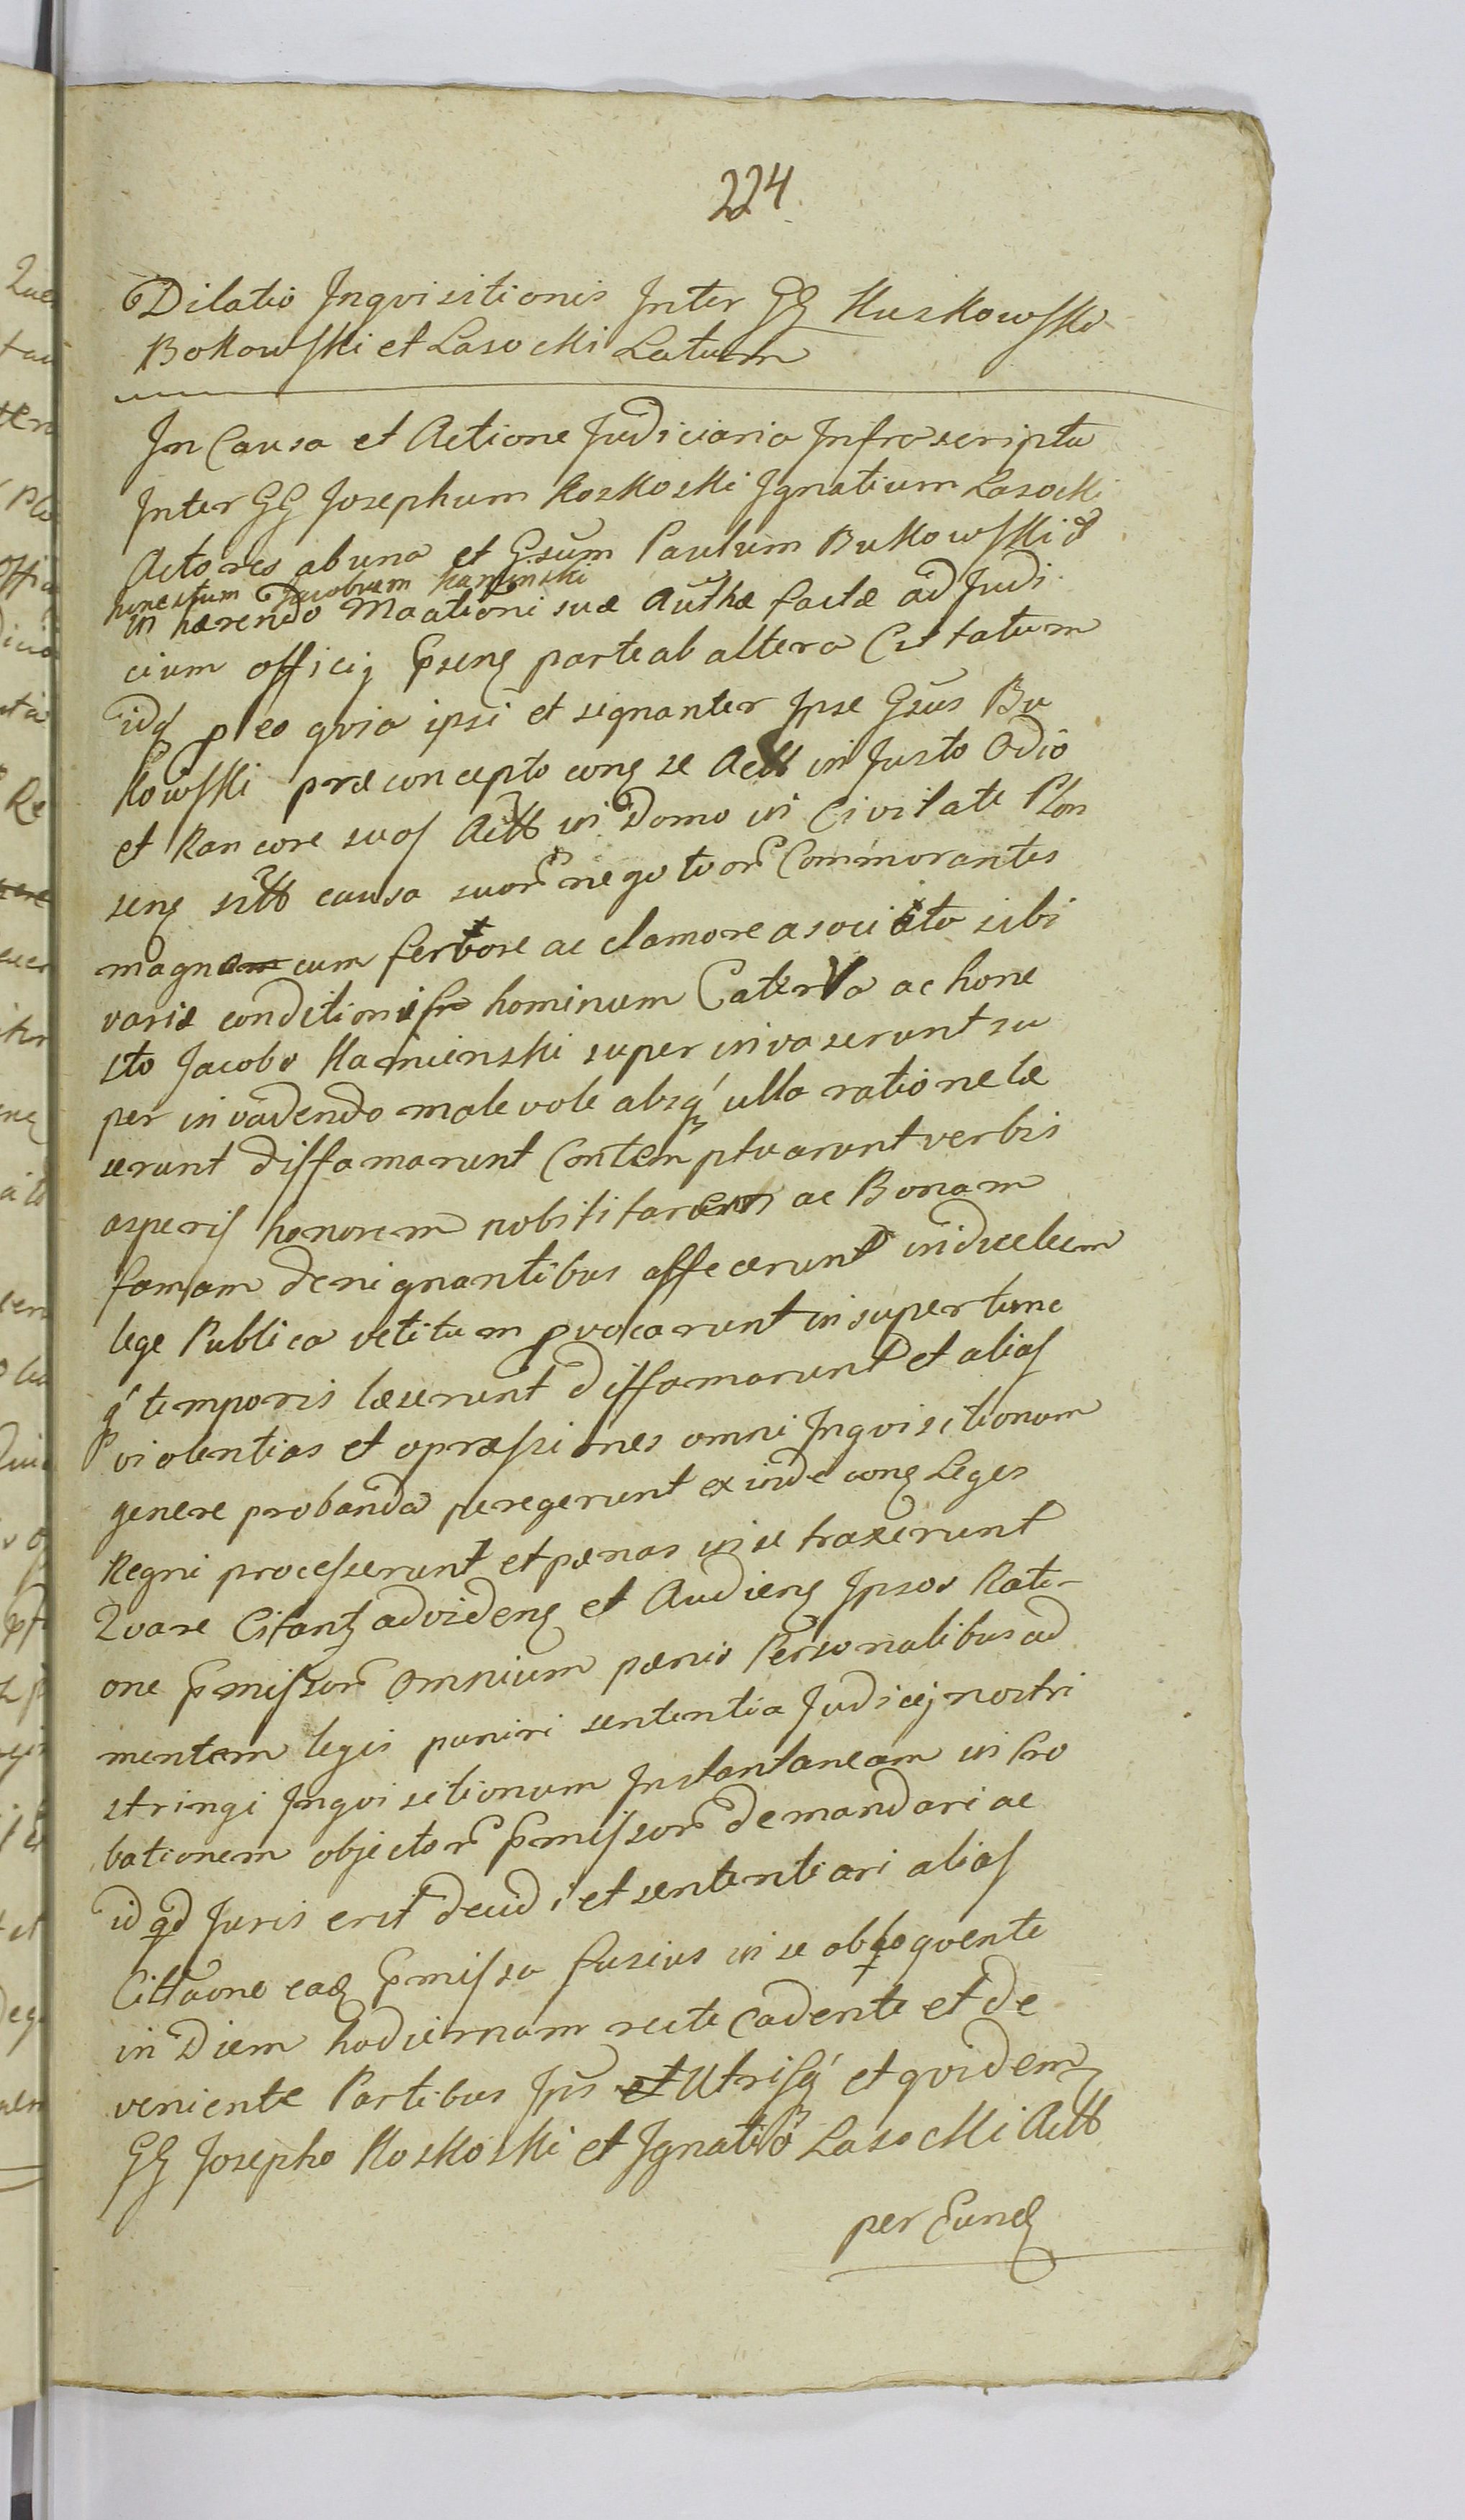 224
Dilatio Inqvisitionis Inter GG Kuskowski
Bokowski et Lasocki Latum
In Causa et Actione Judiciaria Infrascripta
Inter GG Josephum Koskoski Ignatium Lasocki
Actores ab una et Gsum Paulum Bukowski &
honestum Jacobum Kaminski
in hærendo Maationi suæ Authæ factæ ad Judi
cium officij Pseng parte ab altera Cittatum
idq p eo qvia ipsi et signanter Ipse Gsus Bu
kowski præconcepto cong se Actt injusto Odio
et Rancore suos Actt in Domo in Civitate Plon
seng sitt causa suor negotior Commorantes
magna cum fervore ac clamore asociato sibi
variæ conditionis hominum Caterva ac hone
sto Jacobo Kamienski super invaserunt su
per invadendo malevole absq ulla ratione læ
serunt diffamarunt Contemptuarunt verbis
asperis honorem nobilitarem ac Bonam
famam denigrantibus affecerunt induellum
lege Publica vetitum pvocarunt insuper tunc
q temporis læserunt diffamarunt et alias
violentias et opræssiones omni Inqvisitionum
genere probanda peregerunt exinde cong Leges
Regni processerunt et pænas in se traxerunt
Qvare Citantz ad videng et Audieng Ipsos Rati-
one Pmissor Omnium pænis Personalibus ad
mentem legis puniri sententia Judicij nostri
stringi Inqvisitionum Instantaneam in Pro
bationem objector Pmissor demandari ac
id qd Juris erit decidi et sententiari alias
Cittaone eaq Pmissa fusius in se obloqvente
in Diem hodiernam recte Cadente et de
veniente Partibus Ipis Utrisq et qvidem
GG Josepho Koskoski et Ignatio Lasocki Actt
per Eund